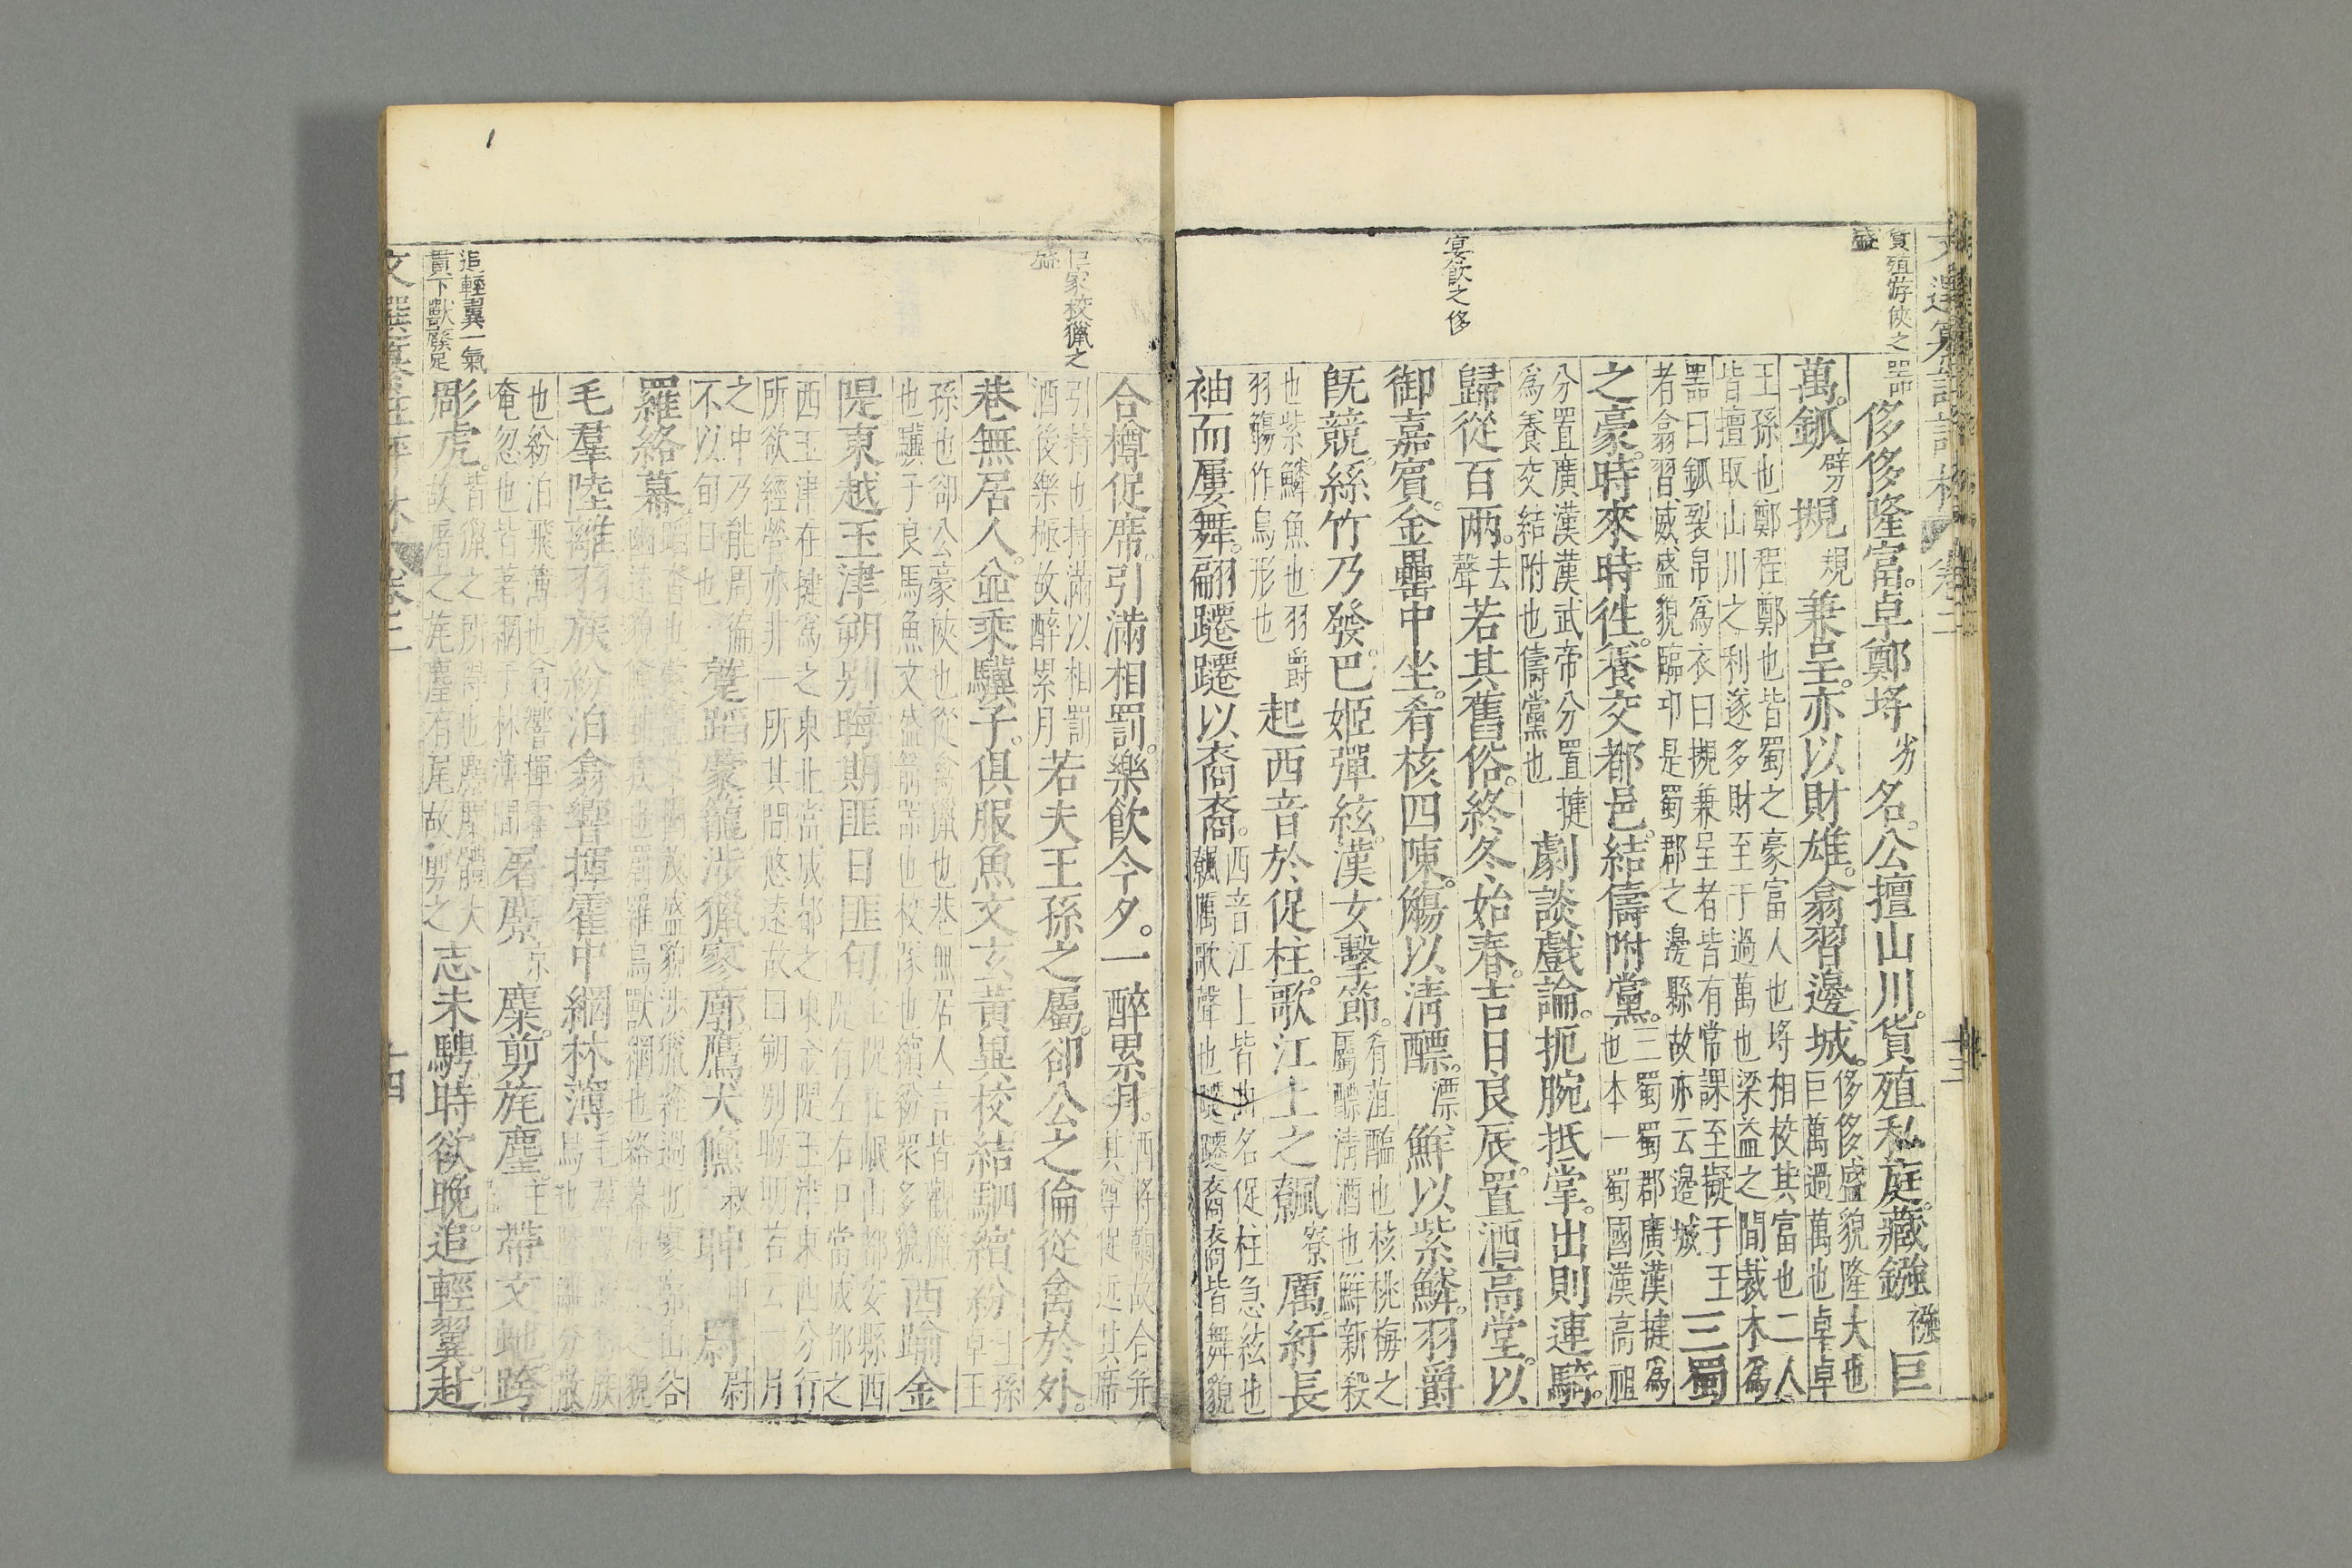 貨殖游俠之
盛
器侈侈隆富。卓鄭埒劣名。公擅山川。貨殖私庭。藏鏹襁巨
萬。鈲劈摫規兼呈。亦以財雄。翕習邊城。侈侈盛貌隆大也
巨萬過萬也卓卓
王孫也鄭程鄭也皆蜀之豪富人也埒相校其富也二人
皆擅取山川之利遂多財至于過萬也梁益之間裁木為
器曰鈲裂帛為衣曰摫兼呈者皆有常課至擬于王
者翕習威盛貌臨卭是蜀郡之邊縣故亦云邊城三蜀
之豪。時來時徃。養交都邑。結儔附黨。三蜀蜀郡廣漢揵為
也本一蜀國漢高祖
分置廣漢漢武帝分置揵
為養交結附也儔黨也劇談戲論。扼腕抵掌。出則連騎。
歸從百兩。去聲若其舊俗。終冬始春。吉日良辰。置酒高堂。以
宴飲之侈
御嘉賓。金罍中坐。肴核四陳。觴以淸醥。漂鮮以紫鱗。羽爵
旣競。絲竹乃發。巴姬彈絃。漢女擊節。肴葅醢也核桃梅之
屬醥淸酒也鮮新殺
也紫鱗魚也羽爵
羽觴作鳥形也起西音於促柱。歌江上之飉寮厲。紆長
袖而屢舞。翩躚躚以裔裔。西音江上皆曲名促柱急絃也
飉厲歌聲也躚躚裔裔皆舞貌
合樽促席。引滿相罰。樂飲今夕。一醉累月。酒將闌故合并
其尊促近其席
引持也持滿以相罰
酒後樂極故醉累月若夫王孫之屬。卻公之倫。從禽於外。
巨家校獵之
盛
巷無居人。並乘驥子。俱服魚文。玄黃異校。結駟繽紛。王孫
卓王
孫也卻公豪俠也從禽獵也巷無居人言皆觀獵
也驥子良馬魚文盛箭器也校隊也繽紛眾多貌西踰金
隄。東越玉津。朔別晦期。匪日匪旬。金隄在岷山都安縣西
隄有左右口當成都之
西玉津在揵為之東北當成都之東金隄玉津東西分行
所欲經營亦非一所其間悠遠故曰朔別晦期若云一月
之中乃能周徧
不以旬日也蹵蹈蒙籠。涉獵寥廓。鷹犬儵叔眒申罻尉
羅絡幕。
毛羣陸離。羽族紛泊。翕響揮霍。中網林薄。
也紛泊飛薄也翕響揮霍
奄忽也皆著網于林薄間屠麖京麋。剪旄麈。主帶文虵。跨
追輕翼一氣
貫下獸麋足
彫虎。皆獵之所得也麖麋體大
故屠之旄麈有尾故剪之志未騁。時欲晚。追輕翼。赴